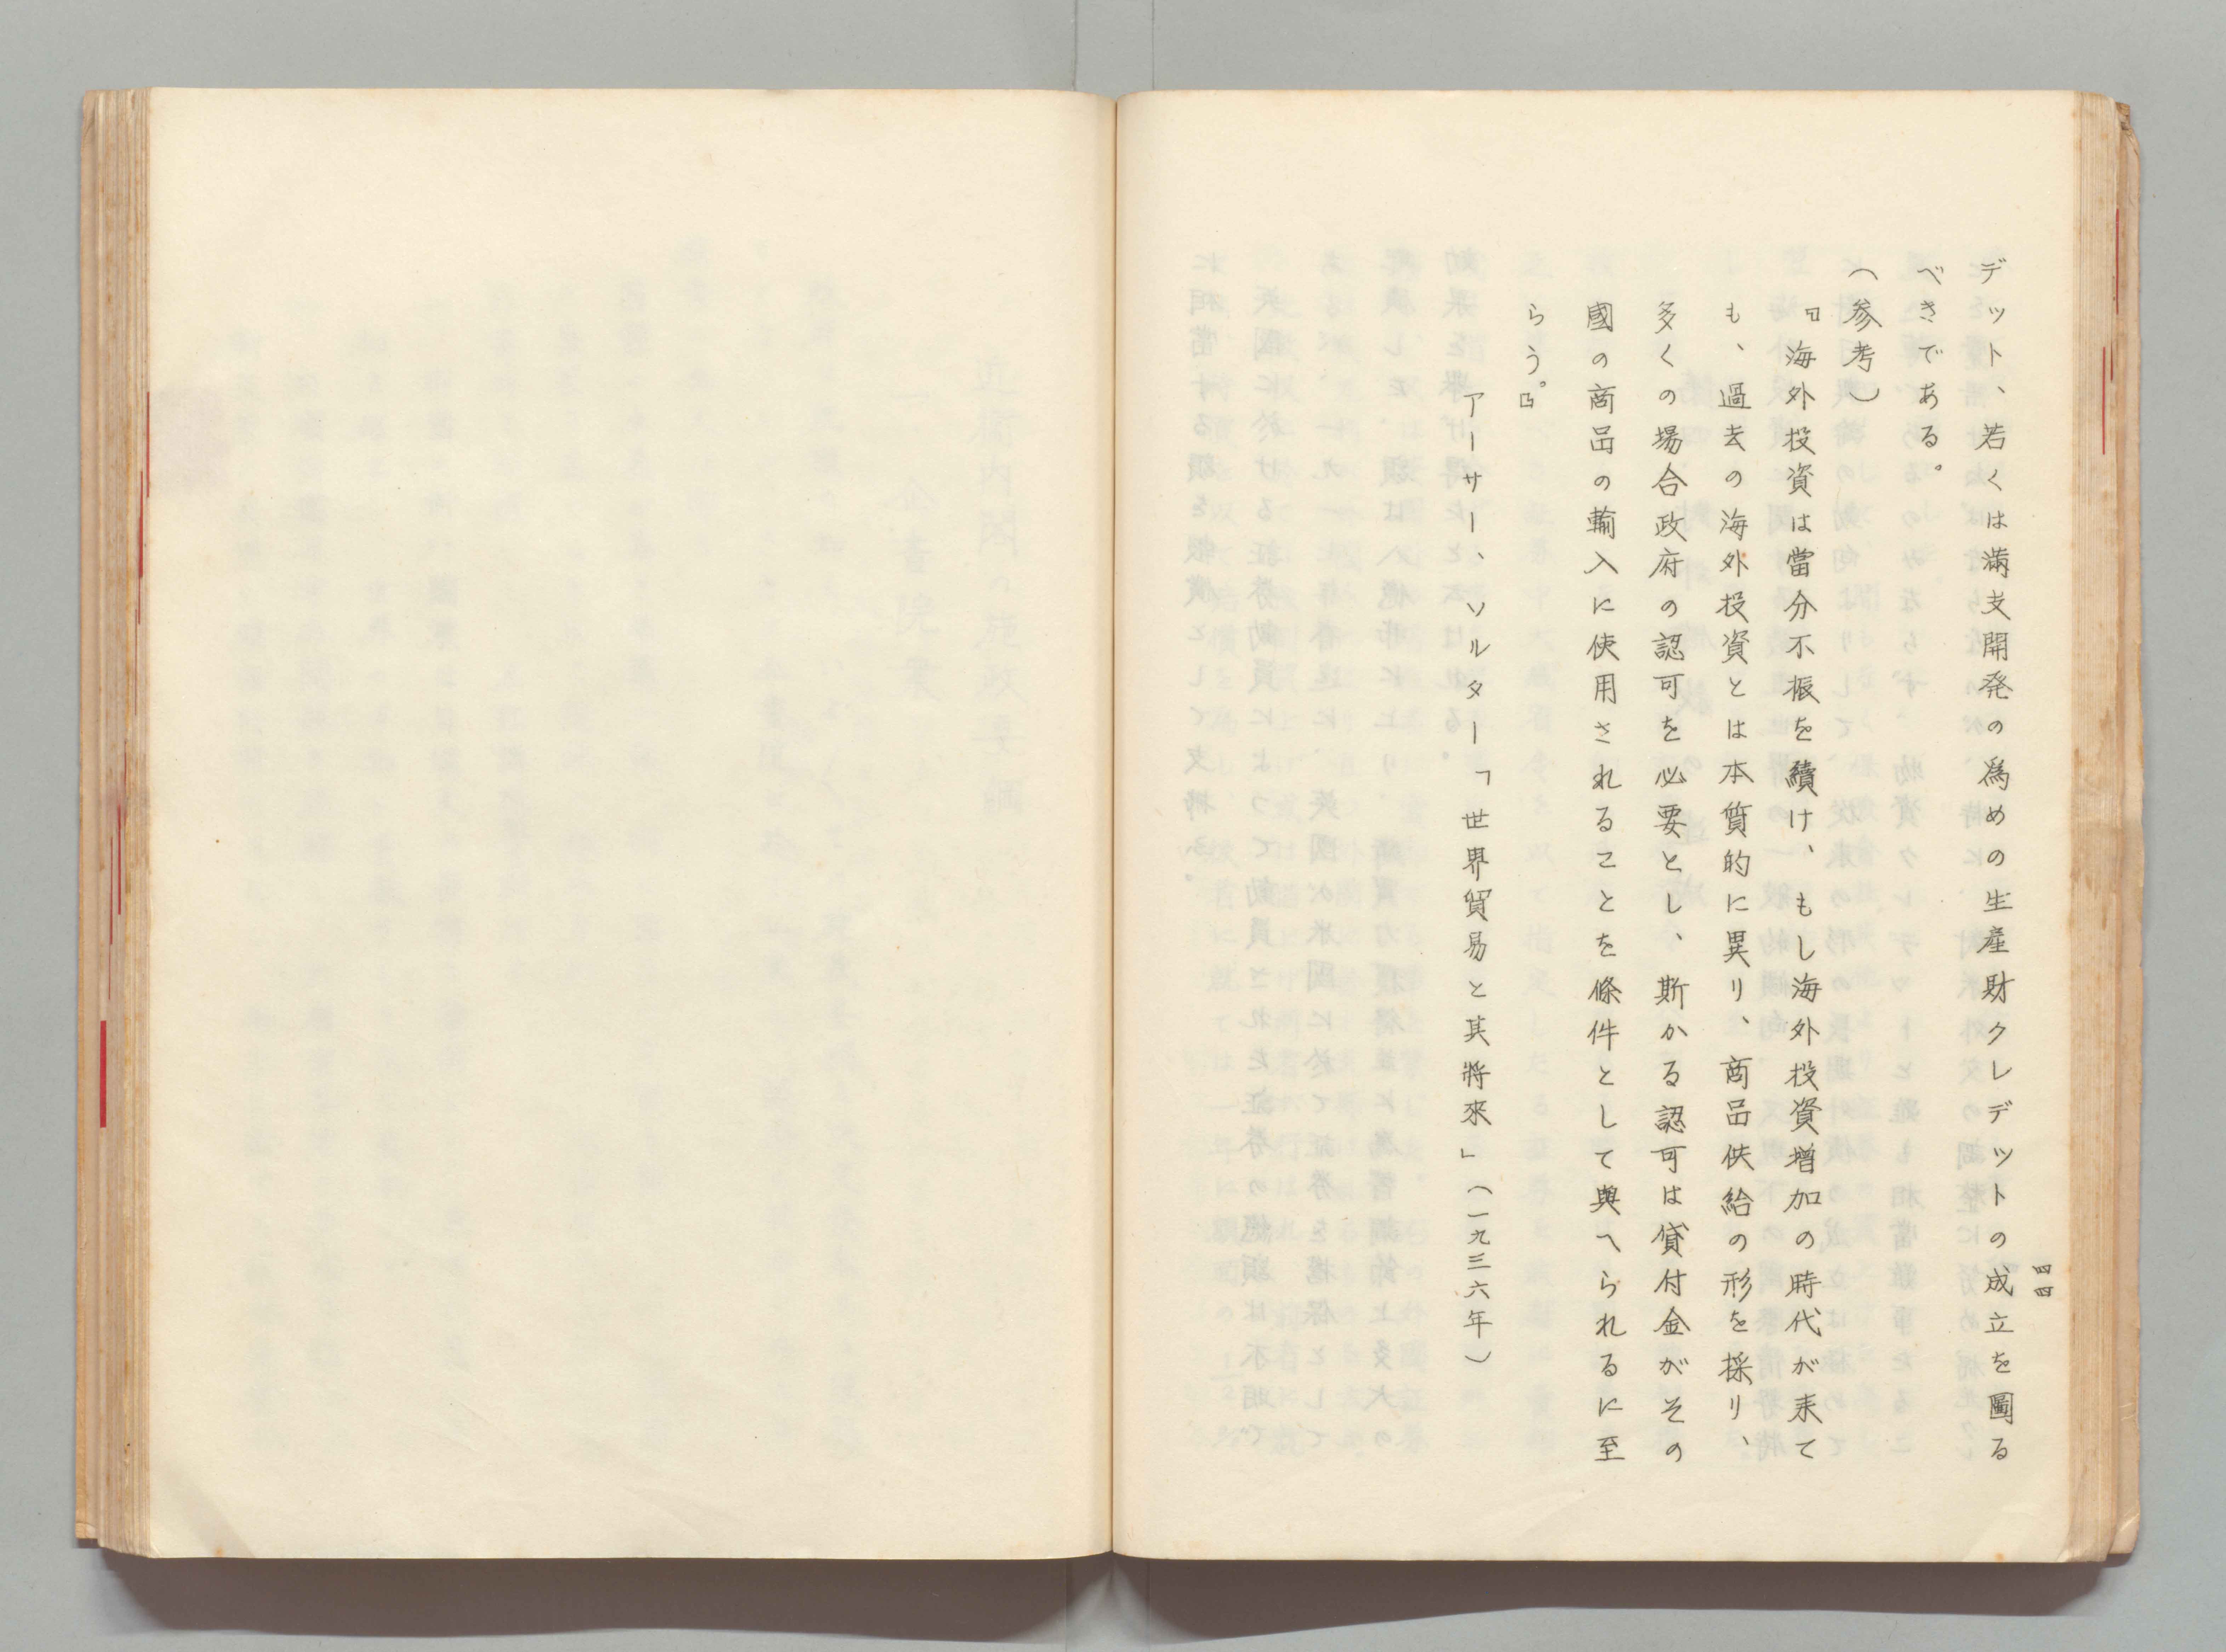 四四
デット、若くは滿支開発の爲めの生産財クレデットの成立を圖る
べきである。
（参考）
『海外投資は當分不振を續け、もし海外投資増加の時代が来て
も、過去の海外投資とは本質的に異り、商品供給の形を採り、
多くの場合政府の認可を必要とし、斯かる認可は貸付金がその
國の商品の輸入に使用されることを條件として與へられるに至
らう。』
アーサー、ソルター「世界貿易と其將來」（一九三六年）